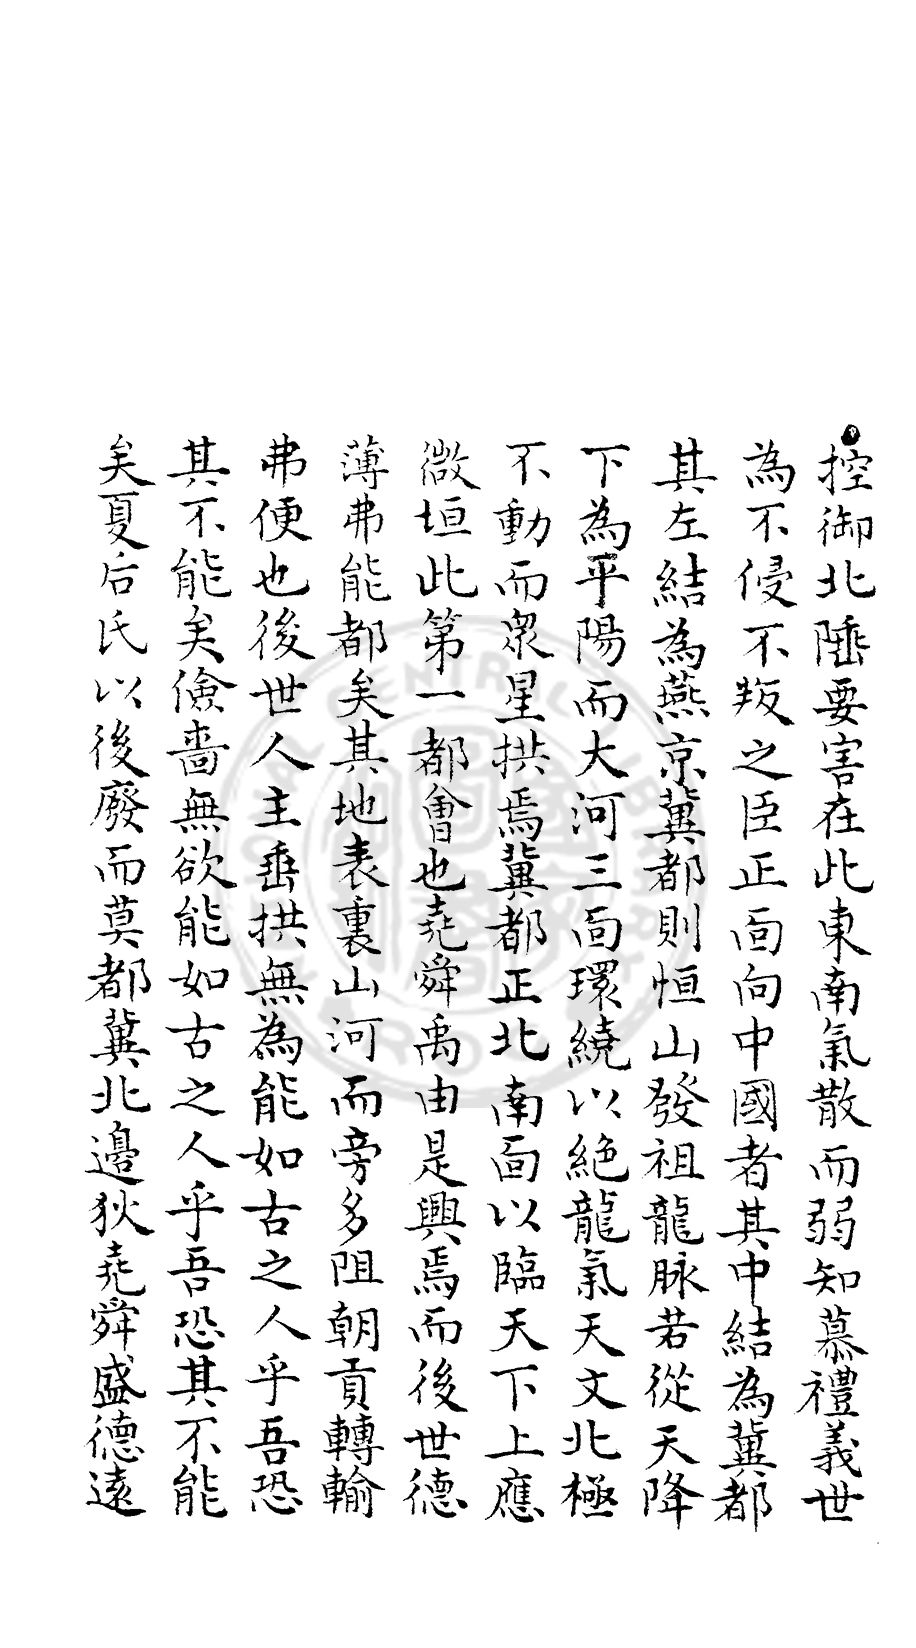 控御北陲要害在此東南氣散而弱知慕禮義世
為不侵不叛之臣正面向中國者其中結為冀都
其左結為燕京冀都則恒山發祖龍脉若從天降
下為平陽而大河三面環繞以絶龍氣天文北極
不動而衆星拱焉冀都正北南面以臨天下上應
微垣此第一都會也堯舜禹由是興焉而後世德
薄弗能都矣其地表裏山河而旁多阻朝貢轉輸
弗便也後世人主垂拱無為能如古之人乎吾恐
其不能矣儉嗇無欲能如古之人乎吾恐其不能
矣夏后氏以後廢而莫都冀北邊狄堯舜盛德遠
NATIONAL CENTRAL LIBRARY